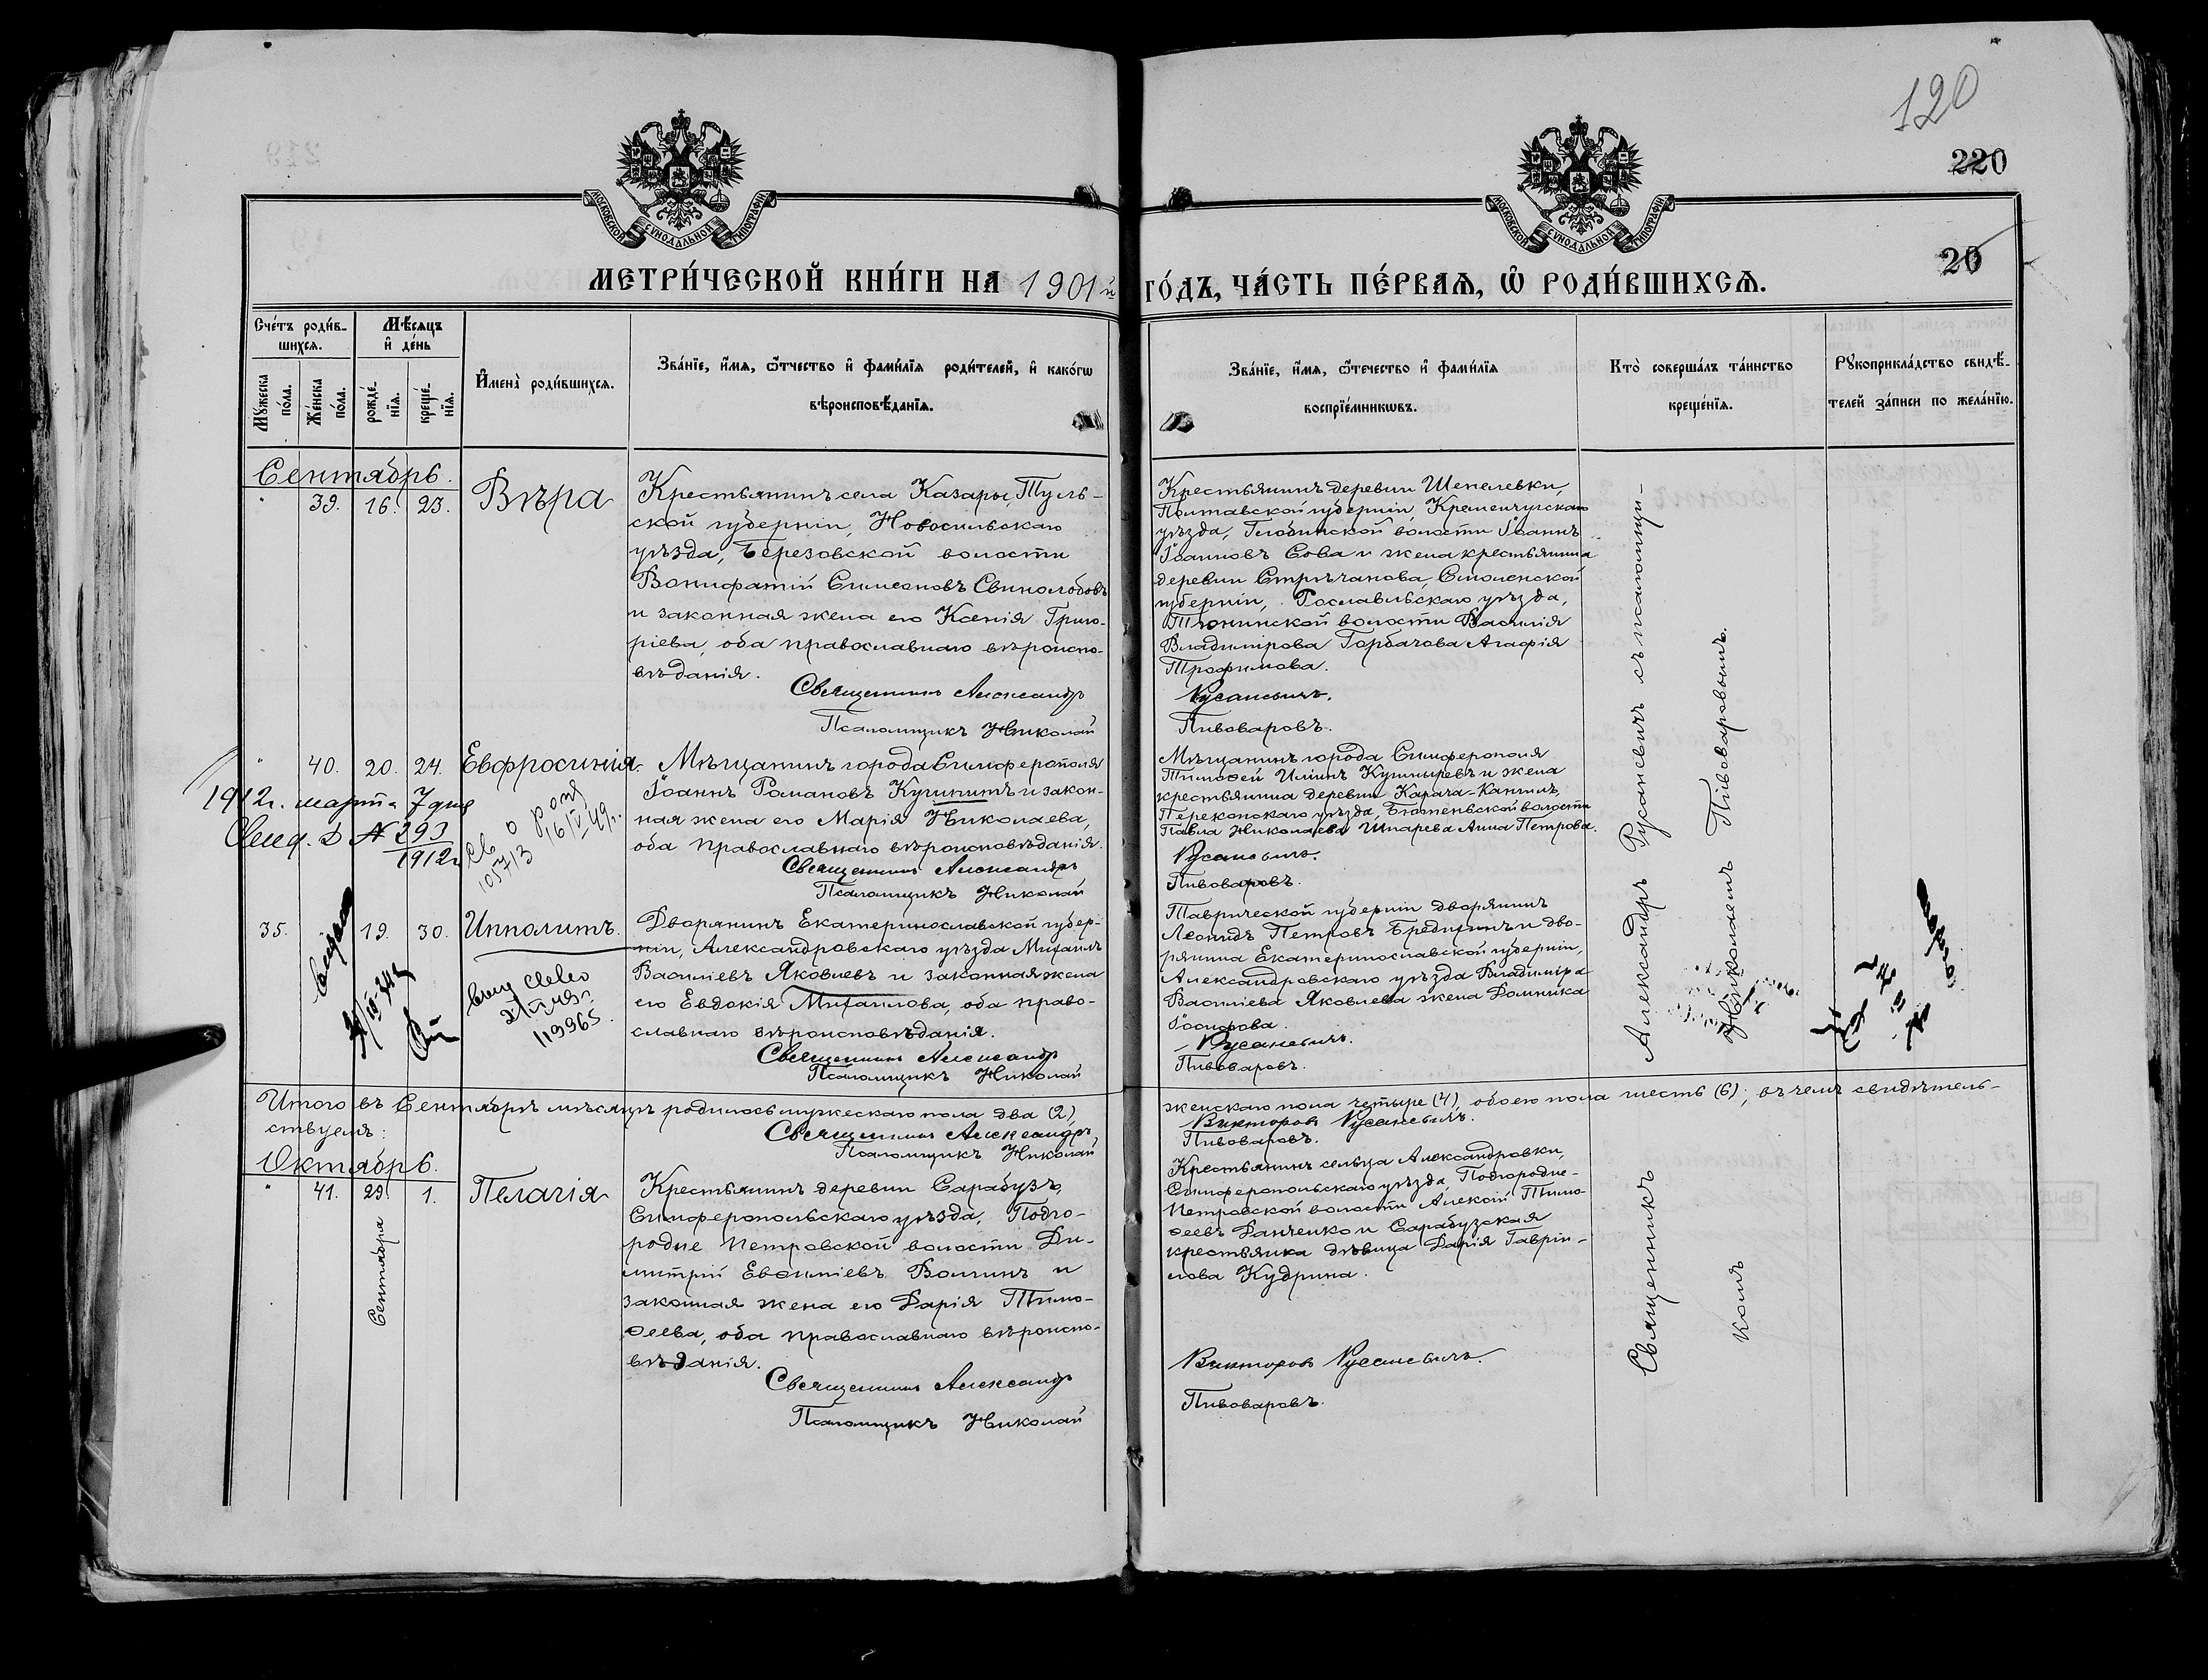 120
220
20
МОСКОВСКОЙ СѴНОДАЛЬНОЙ ТИПОГРАФІИ
МОСКОВСКОЙ СѴНОДАЛЬНОЙ ТИПОГРАФІИ
МЕТРИ́ЧЕСКОЙ КНИ́ГИ НА 1901й ГО́ДЪ, ЧА́СТЬ ПЕ́РВАѦ, Ѽ РОДИ́ВШИХСѦ.
Сче́тъ роди́в-
шихсѧ.
Мѣ́сѧцъ
и҆ де́нь
Мꙋ́жеска по́ла.
Же́нска по́ла.
рожде́нїѧ.
креще́нїѧ.
И҆мена̀ роди́вшихсѧ.
Зва́нїе, и҆́мѧ, ѻ҆́тчество и҆ фами́лїѧ роди́телей, и҆ како́гѡ
вѣроисповѣ́данїѧ.
Зва́нїе, и҆́мѧ, ѻ҆́течество и҆ фами́лїѧ
воспрїе́мникѡвъ.
Кто̀ соверша́лъ та́инство
креще́нїѧ.
Рꙋкоприкла́дство свидѣ́-
телей за́писи по жела́нїю.
Сентябрь.
" 39. 16. 23. Вѣра
Крестьянинъ села Казары, Туль-
ской губерніи, Новосильскаго
уѣзда, Березовской волости
Вонифатій Симеоновъ Свинолобовъ
и законная жена его Ксенія Григо-
ріева, оба православнаго вѣроиспо-
вѣданія.
Священникъ Александръ
Псаломщикъ Николай
Крестьянинъ деревни Шепелевки,
Полтавской губерніи, Кременчугскаго
уѣзда, Глобинской волости Іоаннъ
Іоанновъ Сова и жена крестьянина
деревни Стрѣчанова, Смоленской
губерніи, Рославльскаго уѣзда,
волости Василія
Владимірова Горбачова Агафія
Трофимова.
Русаневичъ.
Пивоваровъ.
" 40. 20. 24. Евфросинія.
Мѣщанинъ города Симферополя
Іоаннъ Романовъ Кучининъ и закон-
ная жена его Марія Николаева,
оба православнаго вѣроисповѣданія.
Священникъ Александръ
Псаломщикъ Николай
1912г. марта 7 дня
№ 293
1912г.
Св о рожд
16/V 49г.
Мѣщанинъ города Симферополя
Тимофей Иліинъ Кушныревъ и жена
крестьянина деревни Карача-Кангилъ,
Перекопскаго уѣзда, волости
Павла Николаева Шпарева Анна Петрова.
Русаневичъ.
Пивоваровъ.
35. 19. 30. Ипполитъ.
Дворянинъ Екатеринославской губер-
ніи, Александровскаго уѣзда Михаилъ
Василіевъ Яковлевъ и законная жена
его Евдокія Михаилова, оба право-
славнаго вѣроисповѣданія.
Священникъ Александръ
Псаломщикъ Николай
119965
Таврической губерніи дворянинъ
Леонидъ Петровъ Бредихинъ и дво-
рянина Екатеринославской губерніи,
Александровскаго уѣзда Владиміра
Василіева Яковлева жена Домника
Іосифова.
Русаневичъ.
Пивоваровъ.
Итого въ Сентябрѣ мѣсяцѣ родилось мужескаго пола два (2), женскаго пола четыре (4), обоего пола шесть (6); въ чемъ свидѣтель-
ствуемъ:
Священникъ Александръ Викторовъ Русаневичъ.
Псаломщикъ Николай Пивоваровъ.
Октябрь.
" 41. 29. 1. Пелагія
Сентября
Крестьянинъ деревни Сарабузъ,
Симферопольскаго уѣзда, Подго-
родне Петровской волости Ди-
митрій Евфиміевъ Волгинъ и
законная жена его Дарія Тимо-
феева, оба православнаго вѣроиспо-
вѣданія.
Священникъ Александръ
Псаломщикъ Николай
Крестьянинъ сельца Александровки,
Симферопольскаго уѣзда, Подгородне-
Петровской волости Алексій Тимо-
феевъ Данченко и Сарабузская
крестьянка дѣвица Дарія Гаврiи-
лова Кудрина.
Викторовъ Русаневичъ.
Пивоваровъ.
Священникъ Александръ Русаневичъ съ псаломщи-
комъ Николаемъ Пивоваровымъ.